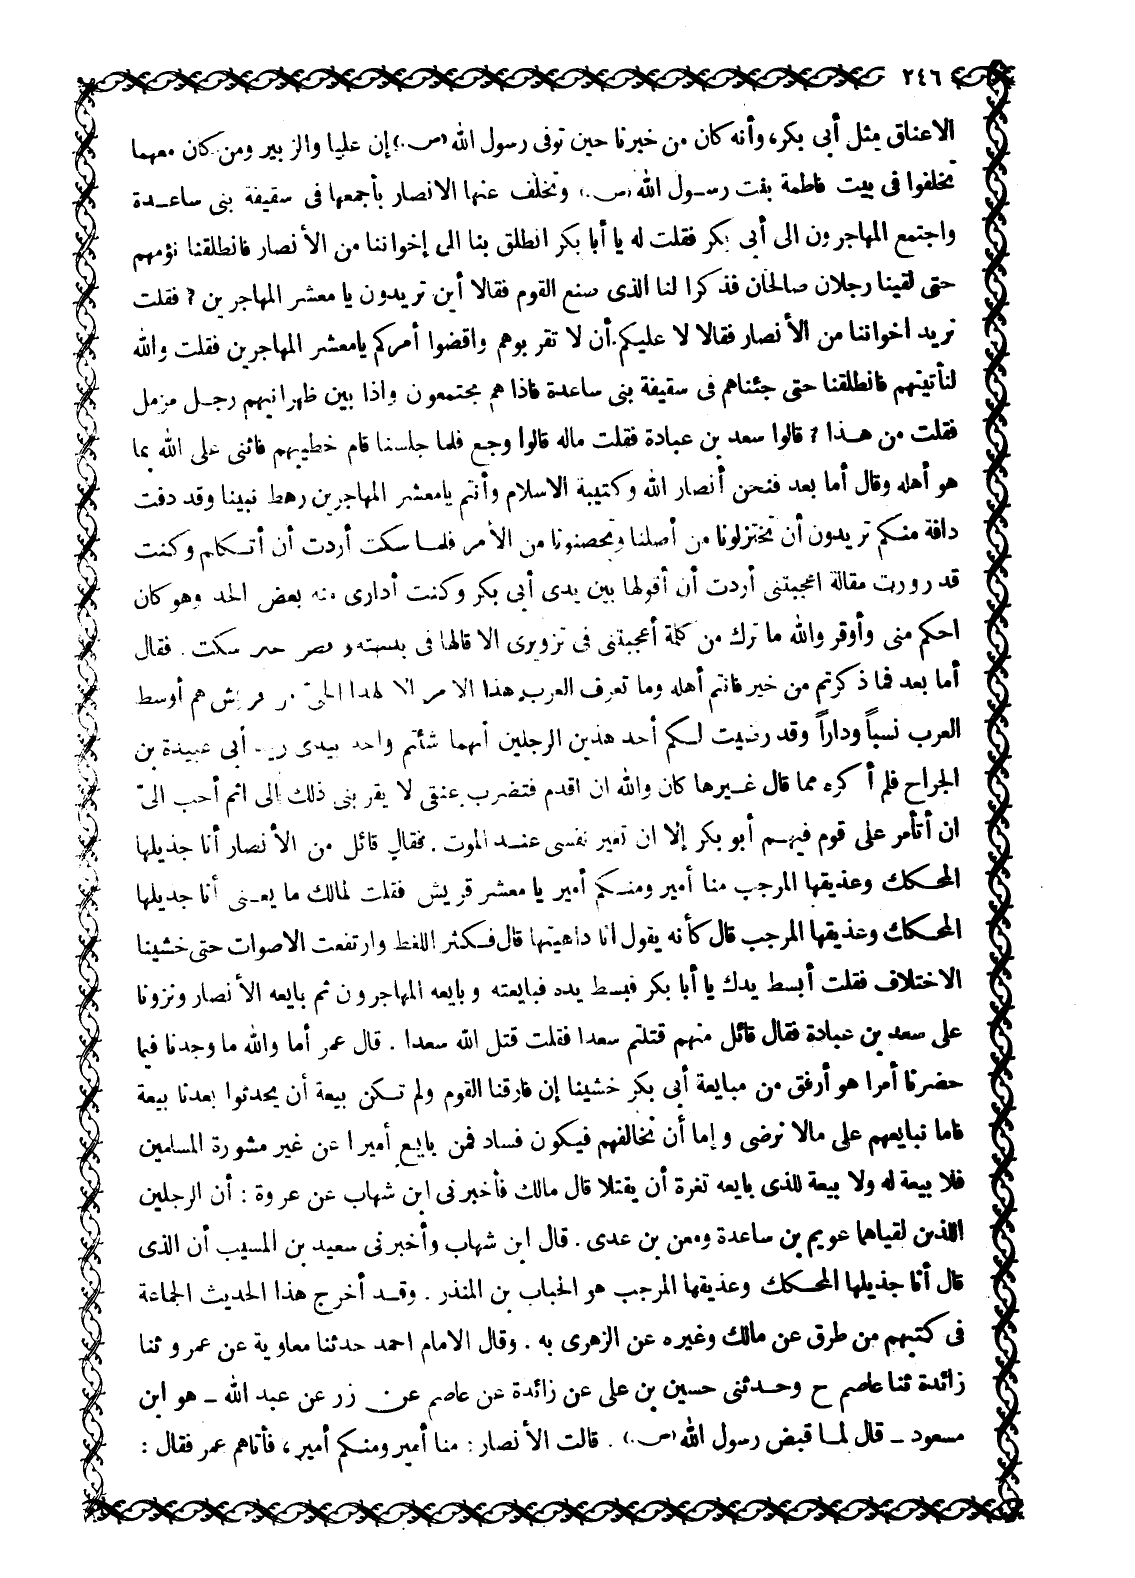 ٢٤٦
الاعناق مثل أبى بكر، وأنه كان من خبرنا حين توفى رسول الله (ص.) إن عليا والزبير ومن كان معهما
تخلفوا فى بيت فاطمة بنت رسول الله (ص.) وتخلف عنها الانصار بأجمعها فى سقيفة بنى ساعدة
واجتمع المهاجرون الى أبى بكر فقلت له يا أبا بكر انطلق بنا الى إخواننا من الأنصار فانطلقنا نؤمهم
حتى لقينا رجلان صالحان فذكرا لنا الذى صنع القوم فقالا أين تريدون يا معشر المهاجرين ? فقلت
نريد اخواننا من الأنصار فقالا لا عليكم أن لا تقربوهم واقضوا أمركم يامعشر المهاجرين فقلت والله
لنأتينهم فانطلقنا حتى جئناهم فى سقيفة بنى ساعدة فاذا هم مجتمعون واذا بين ظهرانيهم رجل مزمل
فقلت من هذا ? قالوا سعد بن عبادة فقلت ماله قالوا وجع فلما جلسنا قام خطيبهم فاثنى على الله بما
هو أهله وقال أما بعد فنحن أنصار الله وكتيبة الاسلام وأنتم يامعشر المهاجرين رهط نبينا وقد دفت
دافة منكم تريدون أن تختزلونا من أصلنا وتحصنونا من الأمر فلما سكت أردت أن أتكلم وكنت
قد زورت مقالة اعجبتنى أردت أن أقولها بين يدى أبى بكر وكنت أدارى منه بعض الحد وهو كان
احكم منى وأوقر والله ما ترك من كلمة أعجبتنى فى تزويرى الا قالها فى بديهته سكت . فقال
أما بعد فما ذكرتم من خير فانتم أهله وما تعرف العرب هذا الامر الا لهذا الحى من قريش هم أوسط
العرب نسباً وداراً وقد رضيت لكم أحد هذين الرجلين أيهما شئتم واحد بيدى أبى عبيدة بن
الجراح فلم أكره مما قال غيرها كان والله ان اقدم فتضرب عنقى لا يقربنى ذلك إلى اثم أحب الىّ
ان أتأمر على قوم فيهم أبو بكر إلا ان تغير نفسى عند الموت . فقال قائل من الأنصار أنا جذيلها
المحكك وعذيقها المرجب منا أمير ومنكم أمير يا معشر قريش فقلت لمالك ما يعنى أنا جديلها
المحكك وعذيقها المرجب قال كأنه يقول انا داهيتها قال فكثر اللغط وارتفعت الاصوات حتى خشينا
الاختلاف فقلت أبسط يدك يا أبا بكر فبسط يده فبايعته وبايعه المهاجرون ثم بايعه الأنصار ونزونا
على سعد بن عبادة فقال قائل منهم قتلتم سعدا فقلت قتل الله سعدا . قال عمر أما والله ما وجدنا فيما
حضرنا أمرا هو أرفق من مبايعة أبى بكر خشينا إن فارقنا القوم ولم تكن بيعة أن يحدثوا بعدنا بيعة
فاما نبايعهم على مالا نرضى وإما أن نخالفهم فيكون فساد فمن بايع أميرا عن غير مشورة المسلمين
فلا بيعة له ولا بيعة للذى بايعه تغرة أن يقتلا قال مالك فأخبرنى ابن شهاب عن عروة : أن الرجلين
اللذين لقياهما عويم بن ساعدة ومعن بن عدى . قال ابن شهاب وأخبرنى سعيد بن المسيب أن الذى
قال أنا جذيلها المحكك وعذيقها المرجب هو الحباب بن المنذر . وقد أخرج هذا الحديث الجماعة
فى كتبهم من طرق عن مالك وغيره عن الزهرى به . وقال الامام احمد حدثنا معاوية عن عمرو ثنا
زائدة ثنا عاصم ح وحدثنى حسين بن على عن زائدة عن عاصم عن زر عن عبد الله ـ هو ابن
مسعود ـ قال لما قبض رسول الله (ص.) . قالت الأنصار : منا أمير ومنكم أمير ، فأتاهم عمر فقال :